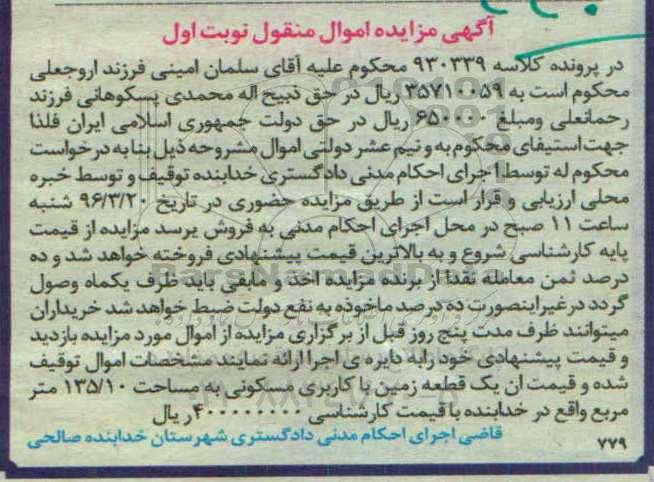 آگهی مزایده اموال منقول نوبت اول
در پرونده کلاسه ۹۳۰۳۳۹ محکوم علیه آقای سلمان امینی فرزند اروجعلی
محکوم است به ۳۵۷۱۰۰۵۹ ریال در حق ذبیح اله محمدی پسکوهانی فرزند
رحمانعلی ومبلغ ۶۵۰۰۰۰ ریال در حق دولت جمهوری اسلامی ایران فلذا
جهت استیفای محکوم به و نیم عشر دولتی اموال مشروحه ذیل بنا به درخواست
محکوم له توسط اجرای احکام مدنی دادگستری خدابنده توقیف و توسط خبره
محلی ارزیابی و قرار است از طریق مزایده حضوری در تاریخ ۹۶/۳/۲۰ شنبه
ساعت ۱۱ صبح در محل اجرای احکام مدنی به فروش برسد مزایده از قیمت
پایه کارشناسی شروع و به بالاترین قیمت پیشنهادی فروخته خواهد شد و ده
درصد ثمن معامله نقدا از برنده مزایده اخذ و مابقی باید ظرف یکماه وصول
گردد درغیراینصورت ده درصد ماخوذه به نفع دولت ضبط خواهد شد خریداران
میتوانند ظرف مدت پنج روز قبل از برگزاری مزایده از اموال مورد مزایده بازدید
و قیمت پیشنهادی خود رابه دایره ی اجرا ارائه نمایند مشخصات اموال توقیف
شده و قیمت ان یک قطعه زمین با کاربری مسکونی به مساحت ۱۳۵/۱۰ متر
مربع واقع در خدابنده با قیمت کارشناسی ۴۰۰۰۰۰۰۰۰ ریال
قاضی اجرای احکام مدنی دادگستری شهرستان خدابنده صالحی
۷۷۹
ParsNamadData